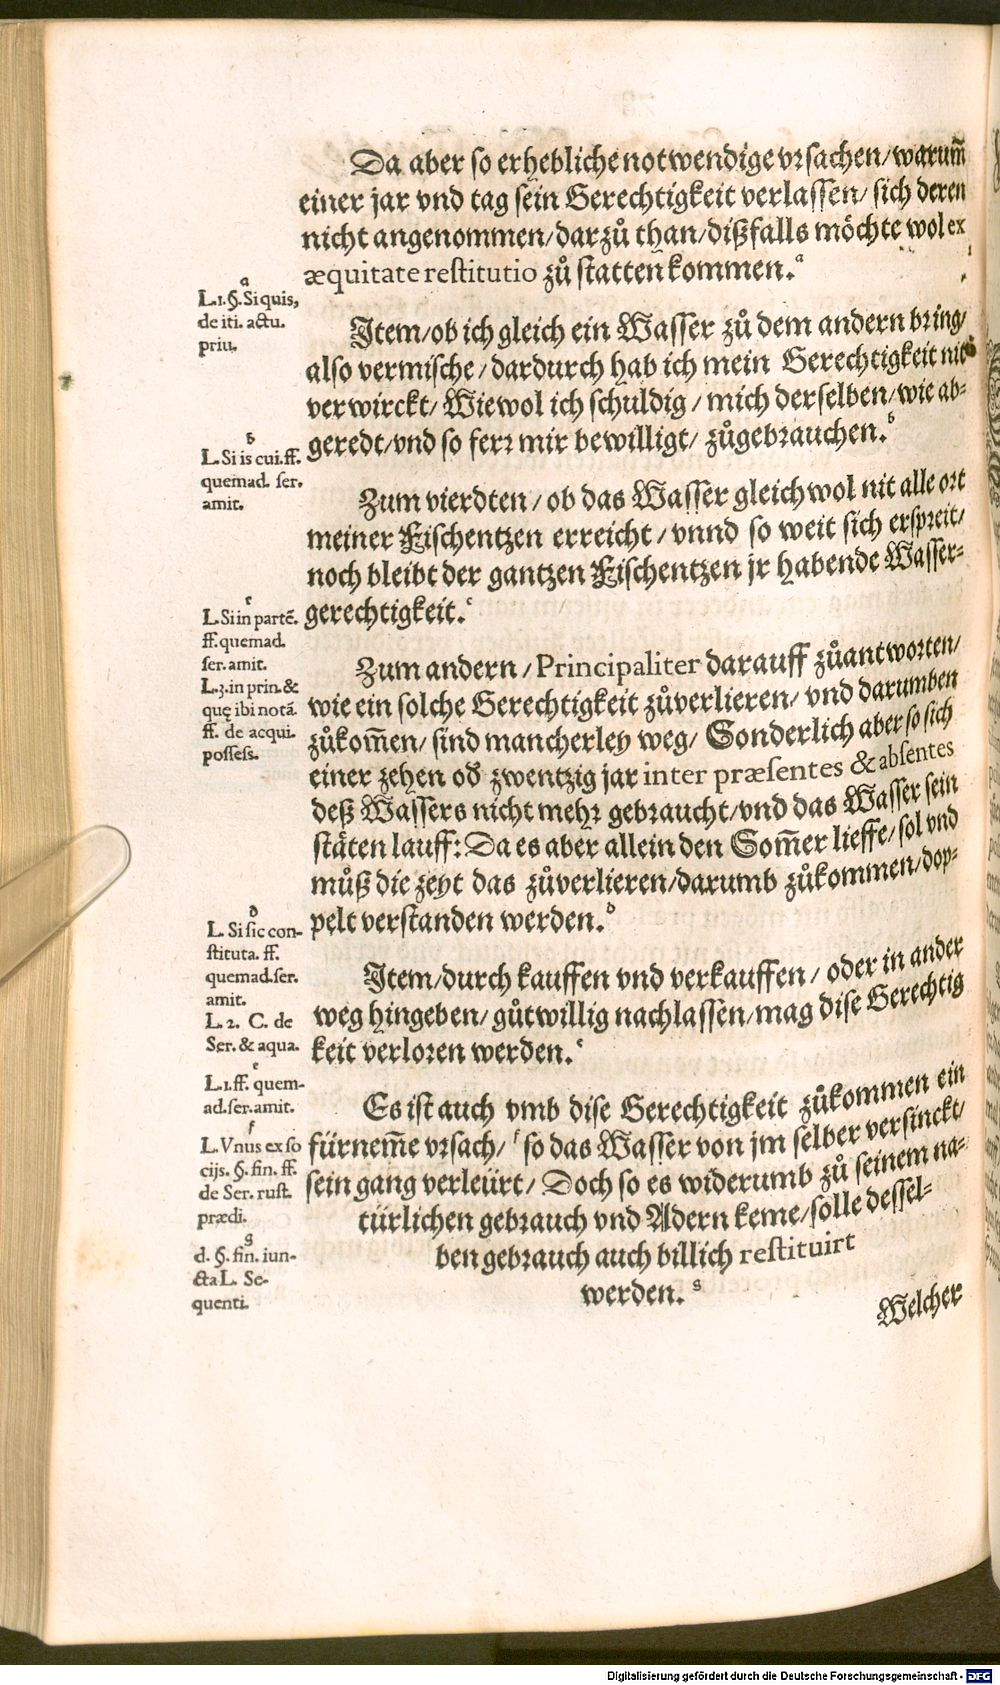 Da aber so erhebliche notwendige vrsachen/ warum̃
einer jar vnd tag sein Gerechtigkeit verlassen/ sich deren
nicht angenommen/ darzů than/ dißfalls möchte wol ex
æquitate restitutio zů statten kommen.ᵃ
a
L. 1. §. Si quis,
de iti. actu.
priu.
Item/ ob ich gleich ein Wasser zů dem andern bring/
also vermische/ dardurch hab ich mein Gerechtigkeit nit
verwirckt/ Wiewol ich schuldig/ mich derselben/ wie ab-
geredt/ vnd so ferr mir bewilligt/ zůgebrauchen.ᵇ
b
L. Si is cui. ff.
quemad. ser.
amit.
Zum vierdten/ ob das Wasser gleichwol nit alle ort
meiner Fischentzen erreicht/ vnnd so weit sich erspreit/
noch bleibt der gantzen Fischentzen jr habende Wasser-
gerechtigkeit.ᶜ
c
L. Si in partē.
ff. quemad.
ser. amit.
L. 3. in prin. &
quę ibi notā.
ff. de acqui.
possess.
Zum andern/ Principaliter darauff zůantworten/
wie ein solche Gerechtigkeit zůverlieren/ vnd darumben
zůkom̃en/ sind mancherley weg/ Sonderlich aber so sich
einer zehen od̕ zwentzig jar inter præsentes & absentes
deß Wassers nicht mehr gebraucht/ vnd das Wasser sein
stäten lauff: Da es aber allein den Som̃er lieffe/ sol vnd
můß die zeyt das zůverlieren/ darumb zůkommen/ dop-
pelt verstanden werden.ᵈ
d
L. Si sic con-
stituta. ff.
quemad. ser.
amit.
L. 2. C. de
Ser. & aqua.
Item/ durch kauffen vnd verkauffen/ oder in ander
weg hingeben/ gůtwillig nachlassen/ mag dise Gerechtig
keit verloren werden.ᵉ
e
L. 1. ff. quem-
ad. ser. amit.
Es ist auch vmb dise Gerechtigkeit zůkommen ein
fürnem̃e vrsach/ ᶠ so das Wasser von jm selber versinckt/
sein gang verleürt/ Doch so es widerumb zů seinem na-
türlichen gebrauch vnd Adern keme/ solle dessel-
ben gebrauch auch billich restituirt
werden.ᵍ
f
L. Vnus ex so
cijs. §. fin. ff.
de Ser. rust.
prædi.
g
d. §. fin. iun-
cta L. Se-
quenti.
Welcher
Digitalisierung gefördert durch die Deutsche Forschungsgemeinschaft - DFG